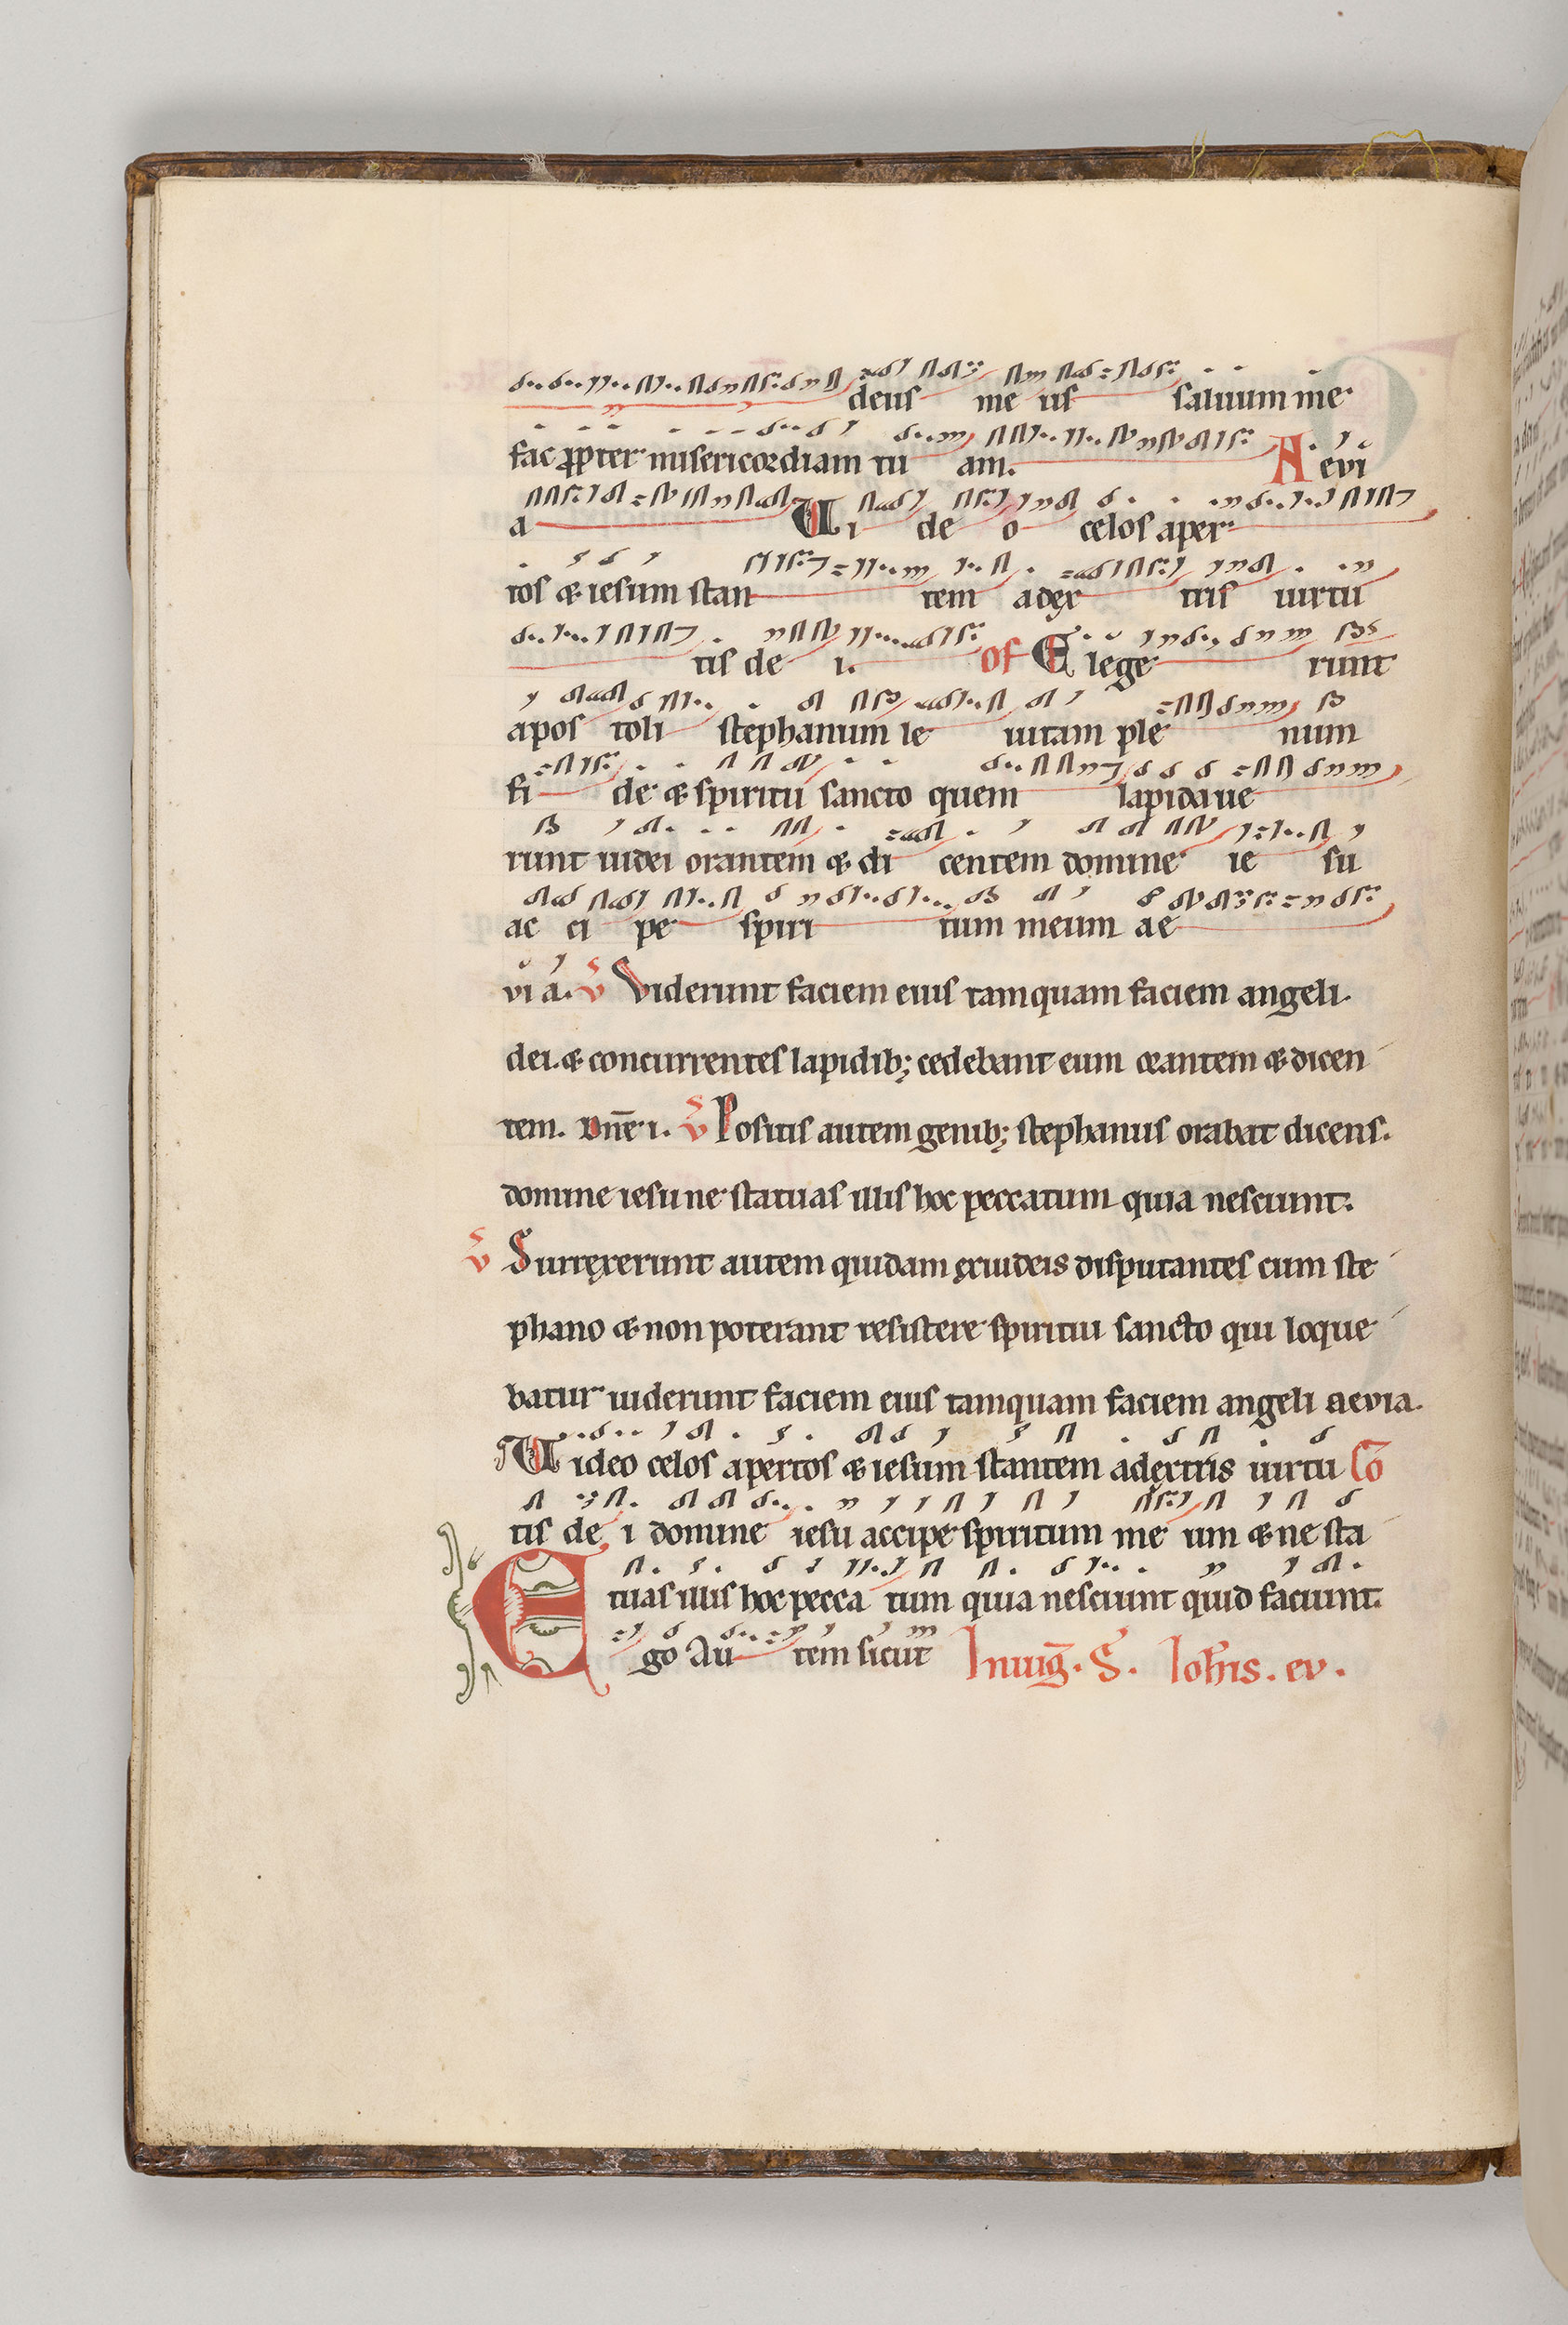 deus me us saluum me
fac propter misericordiam tu am. A evi
a Ui de o celos aper
tos & iesum stan tem adex tris uirtu
tis de i. Of E lege runt
apos toli stephanum le uitam ple num
fi de & spiritu sancto quem lapidaue
runt iudei orantem & di centem domine ie su
ac ci pe spiri tum meum ae
vi a. v Viderunt faciem eius tamquam faciem angeli.
dei. & concurrentes lapidib; cedebant eum orantem & dicen
tem. Dn̄e i. v Positis autem genib; stephanus orabat dicens.
domine iesu ne statuas illis hoc peccatum quia nesciunt.
v Surrexerunt autem quidam exiudeis disputantes cum ste
phano & non poterant resistere spiritui sancto qui loque
batur uiderunt faciem eius tamquam faciem angeli aevia.
Uideo celos apertos & iesum stantem adextris uirtu Cō
tis de i domine iesu accipe spiritum me um & ne sta
tuas illis hoc pecca tum quia nesciunt quid faciunt.
Ego Au tem sicut In uig̅. S. Ioh̅is. ev.